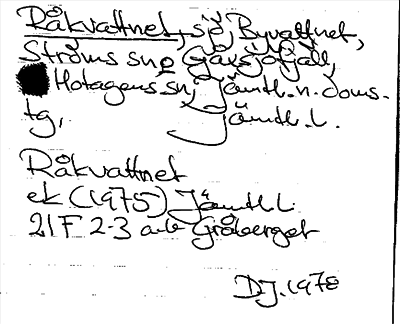 Råkvattnet, sjö, Byvattnet,
Ströms sn o Gåxsjöfjäll,
Hotagens sn, Jämtl. n. doms.
tg, Jämtl. l.
Råkvattnet
ek (1975) Jämtl l
21F 2-3 a-b Gråberget
DJ. 1978